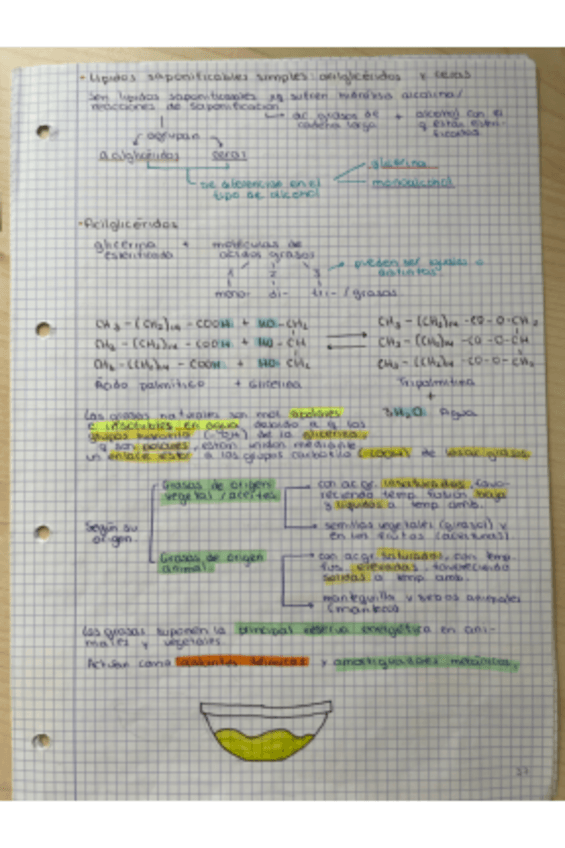 - Lípidos saponificables simples: acilglicéridos y ceras
Son lípidos saponificables xq sufren hidrólisis alcalina /
reacciones de saponificación
ac grasos de cadena larga + alcohol con el q están esterificados
agrupan
acilglicéridos ceras
se diferencian en el tipo de alcohol
glicerina
monoalcohol
- Acilglicéridos
glicerina esterificada + moléculas de ácidos grasos
1 2 3
pueden ser iguales o distintos
mono- di- tri- / grasas
CH₃ - (CH₂)₁₄ - COOH + HO - CH₂ CH₃ - (CH₂)₁₄ - CO - O - CH₂
CH₃ - (CH₂)₁₄ - COOH + HO - CH CH₃ - (CH₂)₁₄ - CO - O - CH
CH₃ - (CH₂)₁₄ - COOH + HO - CH₂ CH₃ - (CH₂)₁₄ - CO - O - CH₂
Ácido palmítico + Glicerina Tripalmitina
+
3H₂O Agua
Las grasas naturales son mol. apolares
e insolubles en agua debido a q los
grupos hidroxilo (-OH) de la glicerina,
q son polares, están unidos mediante
un enlace éster a los grupos carboxilo (-COOH) de los ac. grasos.
Según su origen
Grasas de origen vegetal / aceites
con ac. gr. insaturados, favoreciendo temp. fusión baja
y líquidos a temp. amb.
semillas vegetales (girasol) y
en los frutos (aceitunas).
Grasas de origen animal
con ac. gr. saturados, con temp.
fus. elevadas, favoreciendo
sólidas a temp. amb.
mantequilla y sebos animales
(manteca)
Las grasas suponen la principal reserva energética en ani-
males y vegetales.
Actúan como aislantes térmicos y amortiguadores mecánicos.